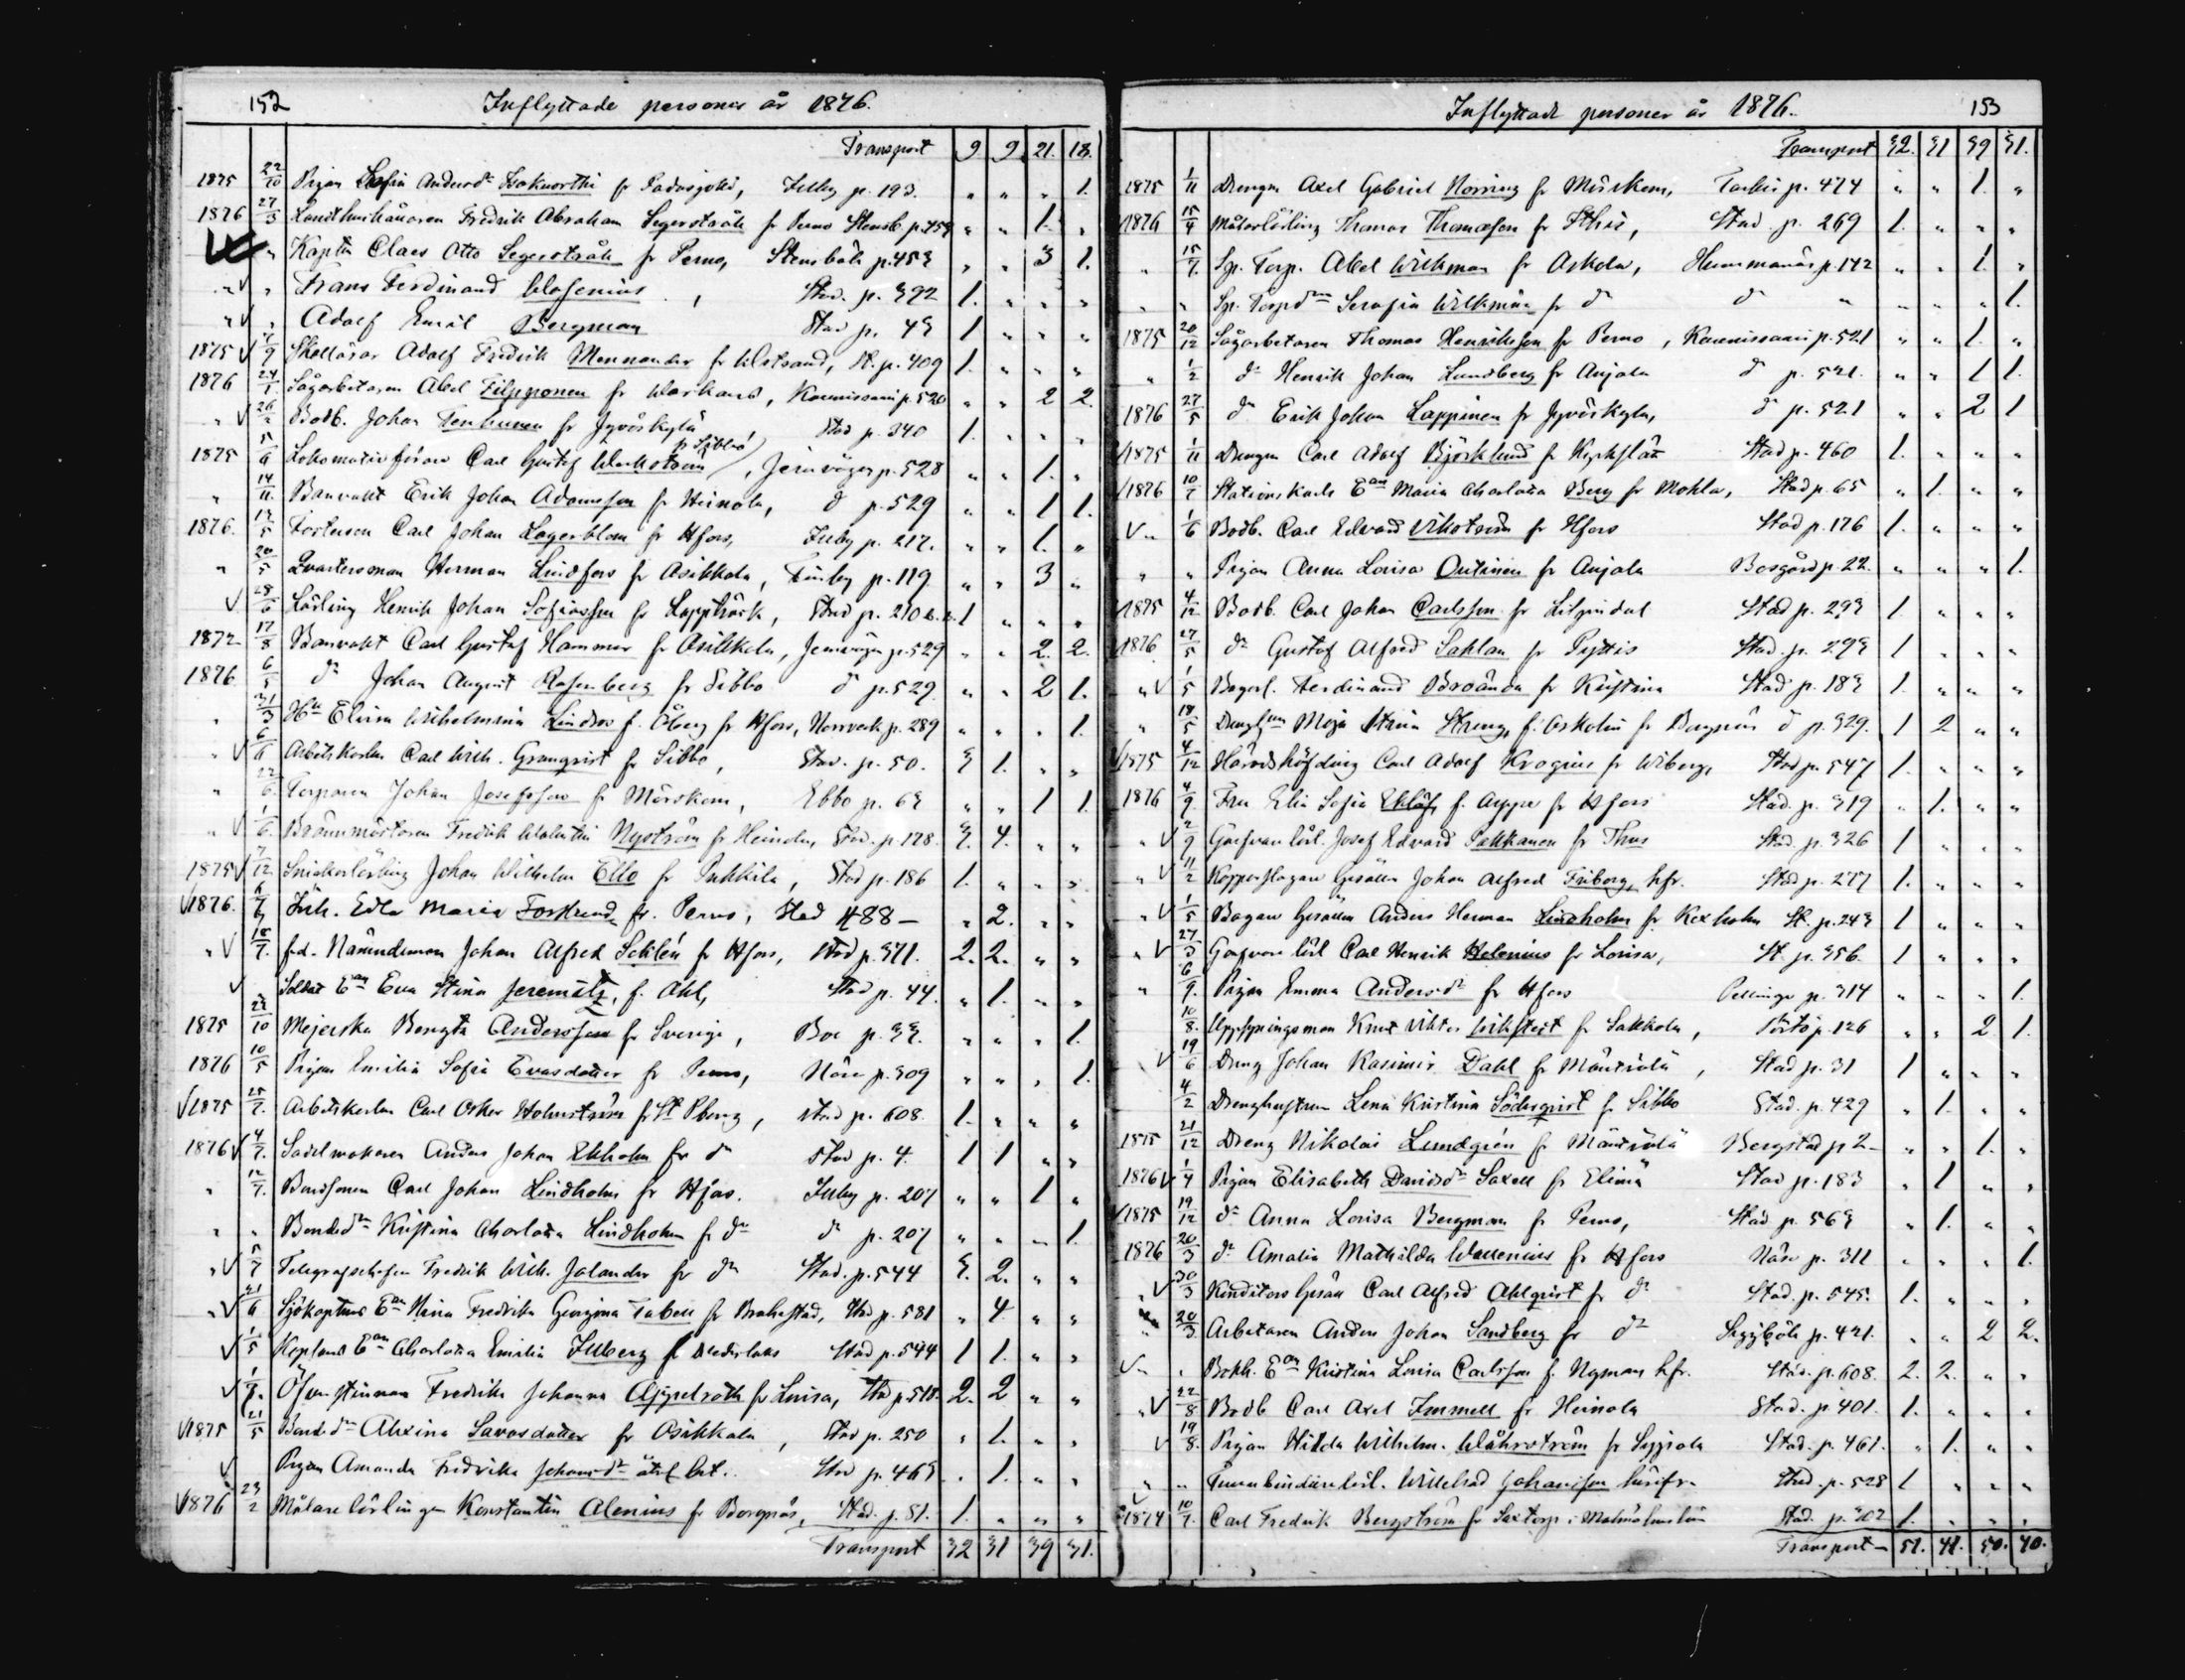 152 Inflyttade personer år 1876.
Transport 9 9 21. 18.
1875 22/10 Pigan Sofia Andersdr Isaksworthi fr Padasjoki, Illby p. 193. " " " 1.
1876 27/3 Landthushållaren Fredrik Abraham Segerstråle fr Perno Stensb. p. 453 " " 1. "
" Kaptn Claes Otto Segerstråle fr Perno, Stensböle p. 453 " " 3 1.
" V " Frans Ferdinand Stad. p. 392 1. " " "
" V " Adolf Emil Bergman Stad p. 43 1 " " "
1875 V /9 Adolf Fredrik Mennander fr St. p. 409 1. " " "
1876 24/1. Sågarbetaren Abel Filpponen fr Warkaus, p. 520 " " 2 2.
" V 26/" Bodb. Johan Tenhunen fr Jyväskylä, Stad p. 340 1. " " "
1875 5/9 Lokomotivförare Carl Gustaf Weckström fr Sibbo, Jernvägen p. 528 " " 1. "
" 14/11. Banvakt Erik Johan Adamsson fr Heinola, do p. 529 " " 1 1.
1876. /5 Carl Johan Lagerblom fr Hfors, Illby p. 217. " " 1. "
" 20/5 Herman Lindfors fr Asikkala, p. 119 " " 3 "
V 28/6 Lärling Henrik Johan Sofiasson fr Lappträsk, Stad p. 210 1 " " "
1872 17/8 Banvakt Carl Gustaf Hammar fr Asikkala, Jernvägen p. 529 " " 2. 2.
1876 6/5 do Johan August Rosenberg fr Sibbo do p. 529. " " 2 1.
" 31/3 Elvira Wilhelmina Lindroos f. Öberg fr Hfors, p. 289 " " " 1.
" V 6/6 Arbetskarlen Carl Wilh. Granqvist fr Sibbo, Stad. p. 50. 3 1. " "
" 22/6. Torparen Johan Josefsson fr Mörskom, Ebbo p. 63 " " 1 1.
" V 1/6. Brännmästaren Fredrik Nyström fr Heinola, Stad. p. 178. 3. 4. " "
1875 V 7/12 Snickarlärling Johan Wilhelm Ello fr Pukkila, Stad p. 186 1. " " "
V 1876. 6/7 Edla Maria fr. Perno, Stad 488 – " 2. " "
" V 18/7. f.d. Johan Alfred Sohlén fr Hfors, Stad p. 371. 2. 2. " "
V " Soldat Ean Eva Stina Jeremitz, f. Ahl, Stad p. 44. " 1. " "
1875 22/10 Mejerska Bengta Andersson fr Sverige, Boe p. 33. " " " 1.
1876 10/5 Pigan Emilia Sofia Evasdotter fr Perno, Näse p. 309 " " " 1.
V 1875 25/7. Arbetskarlen Carl Oskar Holmström fr St Pburg, Stad p. 608. 1. " " "
1876 V 4/7. Sadelmakaren Anders Johan Ekholm fr do Stad p. 4. 1 1 " "
" 12/7. Bondsonen Carl Johan Lindholm fr Hfors. Illby p. 207 " " 1 "
" " Bondedr Kristina Charlotta Lindholm fr do do p. 207 " " " 1.
" V 5/7 Telegrafchefen Fredrik Wilh. Jalander fr do Stad. p. 544 3. 2. " "
" V 21/6 Sjökaptens Ean Nina Fredrika Georgina Tabell fr Brahestad, Stad p. 581 " 4 " "
V 1/5 Kaptens Ean Charlotta Emilia Illberg fr Wederlaks Stad p. 544 1 1. " "
V 1/8. Fredrika Johanna Appelroth fr Lovisa, Stad p. 518. 2. 2 " "
V 1875 21/5 Bondedr Alexina Savasdotter fr Asikkala, Stad p. 250 " 1. " "
V Pigan Amanda Fredrika Johansdr Stad p. 463 " 1. " "
V 1876 23/2 Målare lärlingen Konstantin Alenius fr Borgnäs, Stad. p. 81. 1. " " "
Transport 32 31 39 31.
Inflyttade personer år 1876. 153
Transport 32. 31 39 31.
1875 1/11 Drengen Axel Gabriel Norring fr Mörskom, p. 474 " " 1. "
1876 15/4 Målarlärling Thomas Thomasson fr Sthis, Stad. p. 269 1. " " "
" 15/7. Sp. Torp. Abel Wilkman fr Askola, p. 142 " " 1. "
" " Sp. Torpdrn Serafia Wilkman fr do do " " " " 1.
1875 20/12 Sågarbetaren Thomas Henriksson fr Perno, p. 521 " " 1. "
" 1/2 do Henrik Johan Lundberg fr Anjala do p. 521. " " 1 1.
1876 27/5 do Erik Johan Lappinen fr Jyväskyla, do p. 521 " " 2 1
V 1875 1/11 Drengen Carl Adolf Björklund fr Kyrkslätt Stad p. 460 1. " " "
V 1876 10/7 Stationskarls Ean Maria Charlotta Berg fr Mohla, Stad p. 65 " 1. " "
V " 1/6 Bodb. Carl Edvard Wikström fr Hfors Stad p. 176 1. " " "
" " Pigan Anna Lovisa Outinen fr Anjala Bosgård p. 22. " " " 1.
V 1875 4/12 Bodb. Carl Johan Carlsson fr Liljendal Stad p. 293 1. " " "
V 1876 27/5 do Gustaf Alfred Sahlan fr Pyttis Stad. p. 293 1 " " "
" V 1/5 Bagerl. Ferdinand Broända fr Kristina Stad p. 183 1. " " "
" 18/5 Maja Stina Streng, f. Askolin fr Borgnäs do p. 329. 1 2 " "
V 1875 4/12 Häradshöfding Carl Adolf Krogius fr Wiborg, Stad p. 547 1. " " "
1876 4/9. Fru Elin Sofia Eklöf, f. fr Hfors Stad. p. 319 " 1. " "
" V 2/9 Garfvare lärl. Josef Edvard Pakkanen fr Thus Stad. p. 326 1 " " "
" V 11/2 Kopparslagare Gesällen Johan Alfred Friberg, hfr. Stad p. 277 1. " " "
" V 1/5 Bagare Gesällen Anders Herman Lindholm fr Kexholm St. p. 243 1 " " "
" V 27/3 Garfvare lärl Carl Henrik Helenius fr Lovisa, St. p. 356. 1 " " "
" 6/9. Pigan Emma Andersdr fr Hfors Pellinge p. 314 " " " 1.
10/8. Uppsyningsman Knut Viktor Wikstedt fr Sakkola, p. 126 " " 2 1.
V 19/6 Dreng Johan Kasimir Dahl fr Mäntsälä, Stad p. 31 1 " " "
4/2 Drenghustrun Lena Kristina Söderqvist fr Sibbo Stad. p. 429 " 1. " "
1875 21/12 Dreng Nikolai Lundgrén fr Mäntsälä Bergstad p 2 – " " 1. "
1876 V 1/4 Pigan Elisabeth Davidsdr Saxell fr Elimä Stad p. 183 " 1 " "
V 1875 19/12 do Anna Lovisa Bergman fr Perno, Stad p. 563 " 1. " "
1876 20/3 do Amalia Mathilda Wallenius fr Hfors Näse p. 311 " " " 1.
" V 30/3 Konditors Gesäll Carl Alfred Ahlqvist fr do Stad. p. 545. 1. " " "
" 20/3. Arbetaren Anders Johan Sandberg fr do p. 421. " " 2 2.
V " " Bokh. Ean Kristina Lovisa Carlsson f. Nyman hfr. Stad. p. 608. 2. 2. " "
" V 22/8 Bodb Carl Axel Immell fr Heinola Stad. p. 401. 1. " " "
V 19/8. Pigan Hilda Wilhelm. Wåhrström fr Stad. p. 461. " 1. " "
" " Tunnbindarelärl. Willehad Johansson Stad. p. 528 1 " " "
V 1874 10/7. Carl Fredrik Bergström fr Saxtorp i Malmöhuslän Stad. p. 302 1. " " "
Transport – 51. 41. 50. 40.